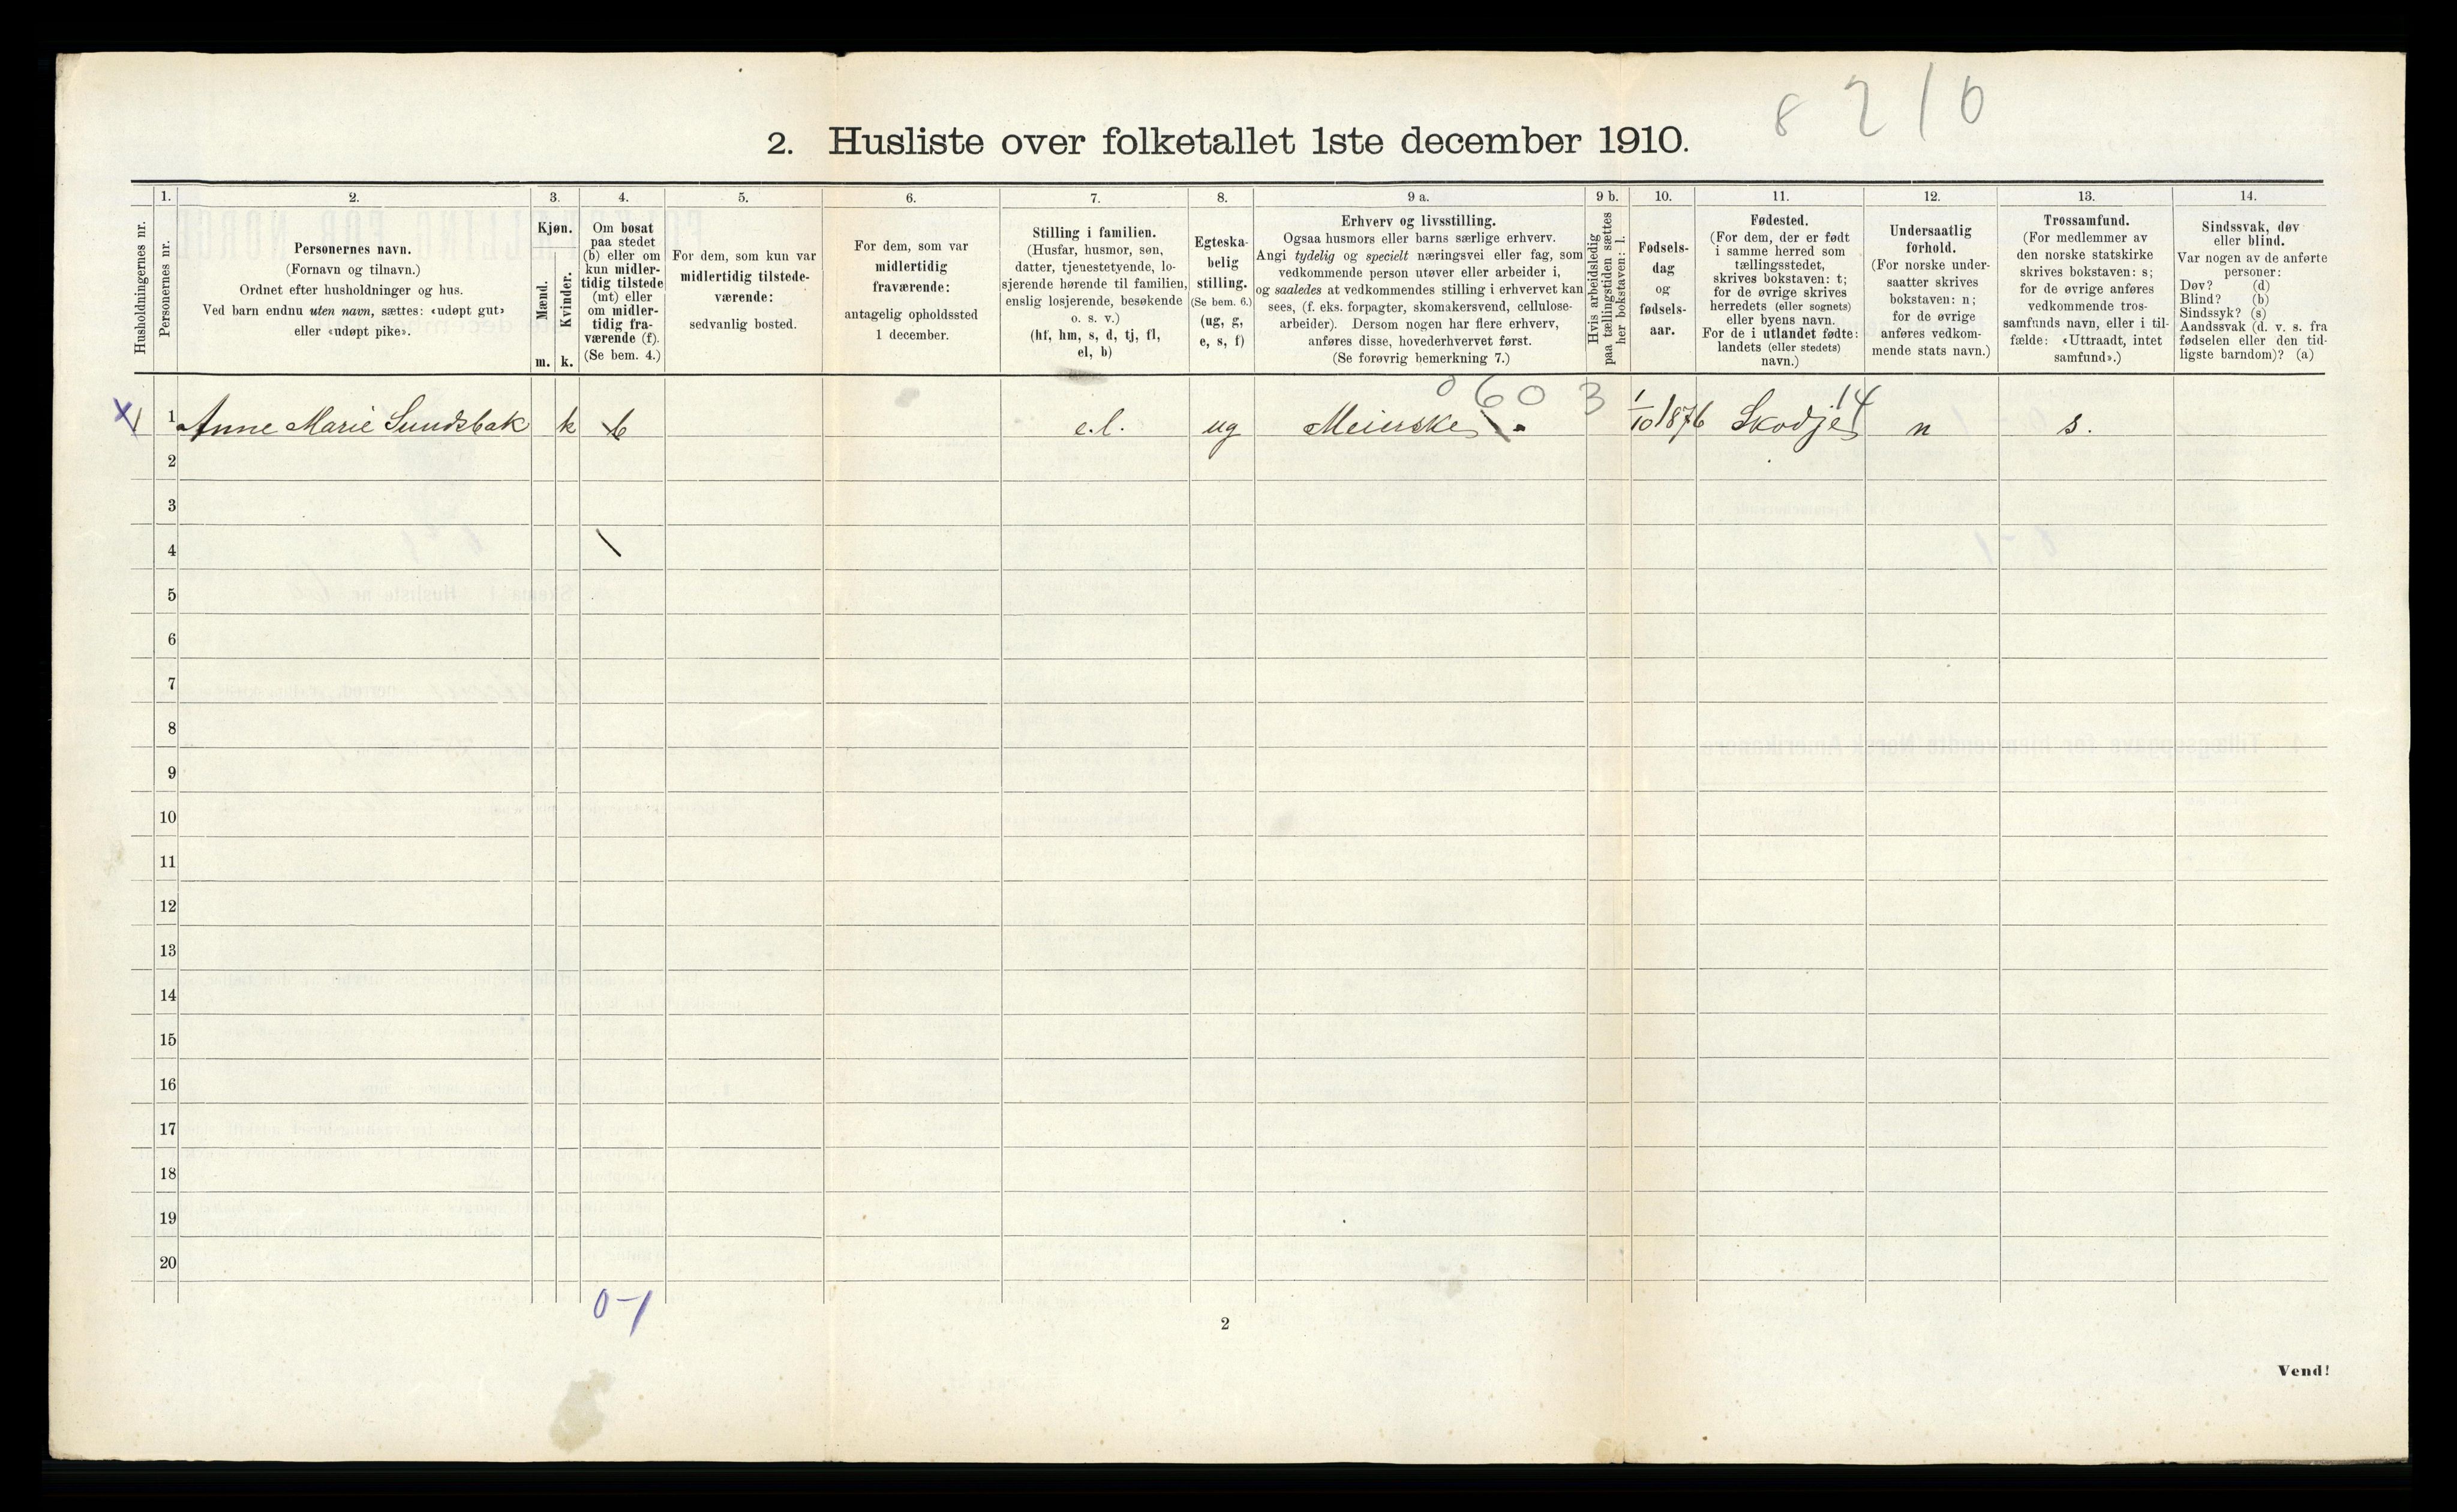 8 2 1 0
2. Husliste over folketallet 1ste december 1910.
Husholdningernes nr.
1.
Personernes nr.
2.
Personernes navn.
(Fornavn og tilnavn.)
Ordnet efter husholdninger og hus.
Ved barn endnu uten navn, sættes: «udøpt gut»
eller «udøpt pike».
3.
Kjøn.
Mænd.
Kvinder.
m. k.
4.
Om bosat
paa stedet
(b) eller om
kun midler-
tidig tilstede
(mt) eller
om midler-
tidig fra-
værende (f).
(Se bem. 4.)
5.
For dem, som kun var
midlertidig tilstede-
værende:
sedvanlig bosted.
6.
For dem, som var
midlertidig
fraværende:
antagelig opholdssted
1 december.
7.
Stilling i familien.
(Husfar, husmor, søn,
datter, tjenestetyende, lo-
sjerende hørende til familien,
enslig losjerende, besøkende
o. s. v.)
(hf, hm, s, d, tj, fl,
el, b)
8.
Egteska-
belig
stilling.
(Se bem. 6.)
(ug, g,
e, s, f)
9 a.
Erhverv og livsstilling.
Ogsaa husmors eller barns særlige erhverv.
Angi tydelig og specielt næringsvei eller fag, som
vedkommende person utøver eller arbeider i,
og saaledes at vedkommendes stilling i erhvervet kan
sees, (f. eks. forpagter, skomakersvend, cellulose-
arbeider). Dersom nogen har flere erhverv,
anføres disse, hovederhvervet først.
(Se forøvrig bemerkning 7.)
9 b.
Hvis arbeidsledig
paa tællingstiden sættes
her bokstaven: l.
10.
Fødsels-
dag
og
fødsels-
aar.
11.
Fødested.
(For dem, der er født
i samme herred som
tællingsstedet,
skrives bokstaven: t;
for de øvrige skrives
herredets (eller sognets)
eller byens navn.
For de i utlandet fødte:
landets (eller stedets)
navn.)
12.
Undersaatlig
forhold.
(For norske under-
saatter skrives
bokstaven: n;
for de øvrige
anføres vedkom-
mende stats navn.)
13.
Trossamfund.
(For medlemmer av
den norske statskirke
skrives bokstaven: s;
for de øvrige anføres
vedkommende tros-
samfunds navn, eller i til-
fælde: «Uttraadt, intet
samfund».)
14.
Sindssvak, døv
eller blind.
Var nogen av de anførte
personer:
Døv? (d)
Blind? (b)
Sindssyk? (s)
Aandssvak (d. v. s. fra
fødselen eller den tid-
ligste barndom)? (a)
0 60 3 14
x 1 1 Anne Marie Sundsbak k b e.l. ug Meierske 1/10 1876 Skodje n s.
2
3
4
5
6
7
8
9
10
11
12
13
14
15
16
17
18
19
20
0-1
2
Vend!